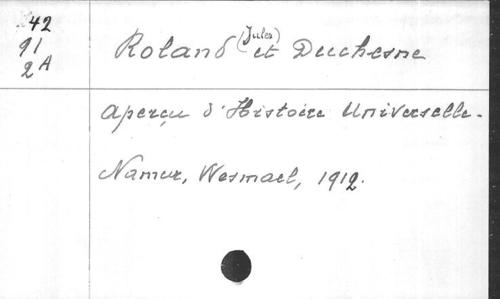 42
91
2A
Roland (Jules) et Duchesne
Aperçu d'Histoire Universelle.
Namur, Wesmael, 1912.